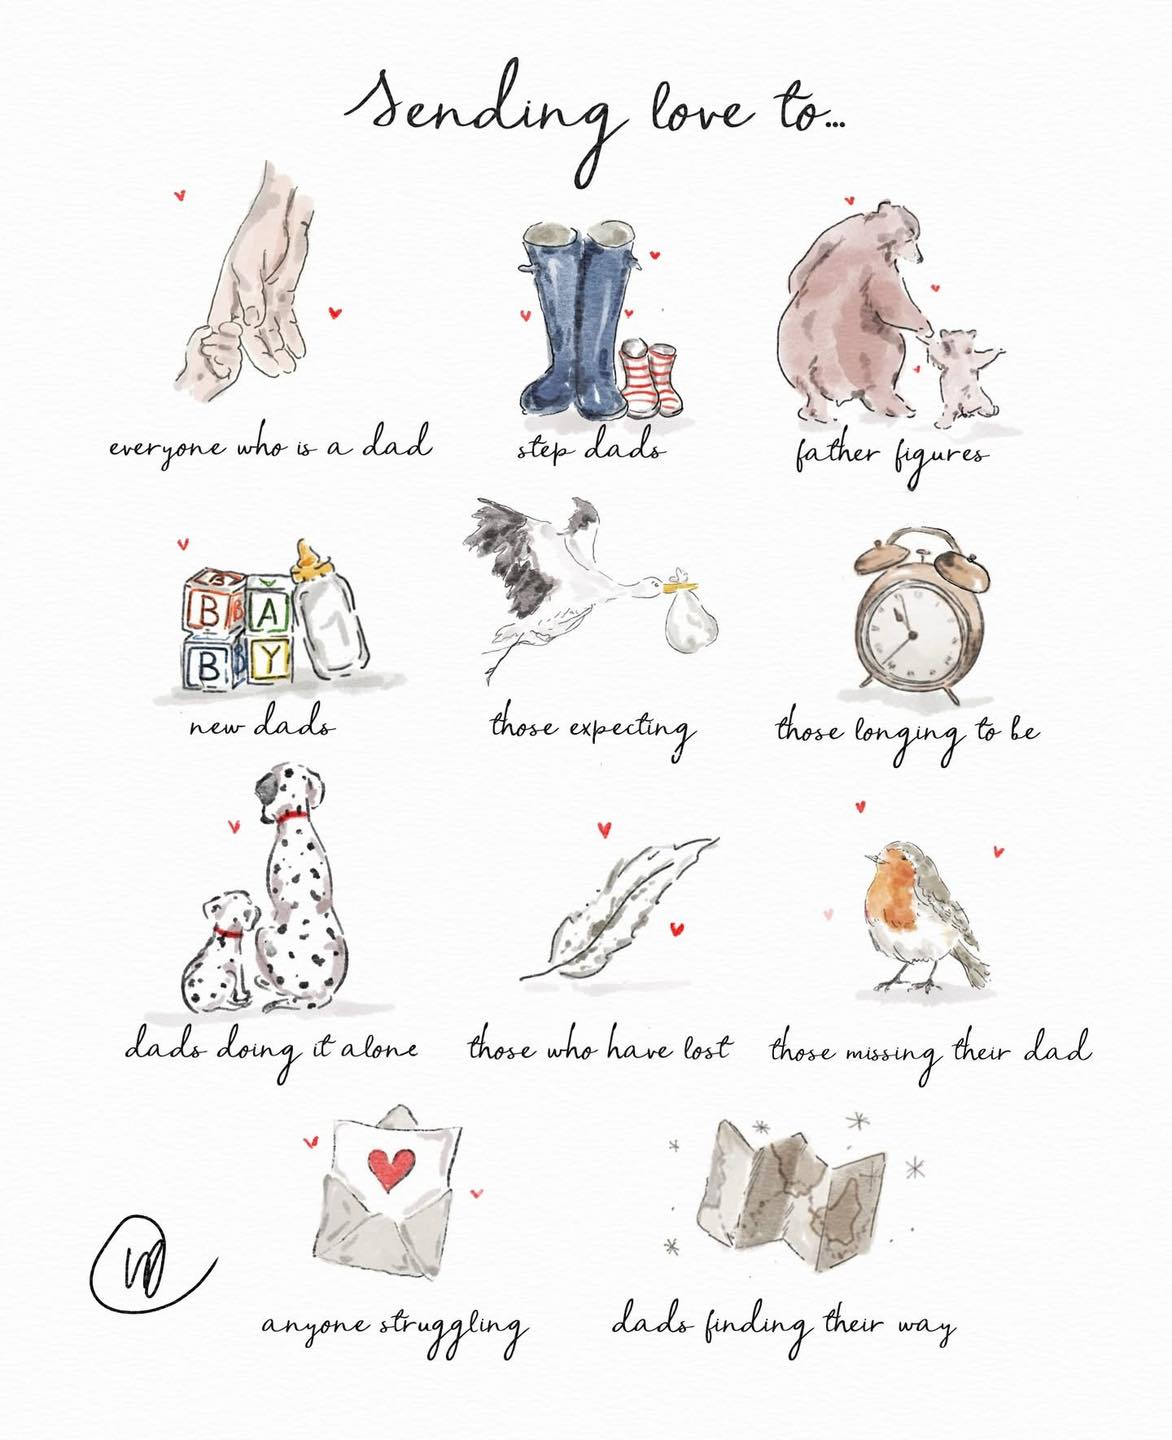 Sending love to...
everyone who is a dad
step dads
father figures
B
B
A
B
B
Y
new dads
those expecting
those longing to be
dads doing it alone
those who have lost
those missing their dad
anyone struggling
dads finding their way